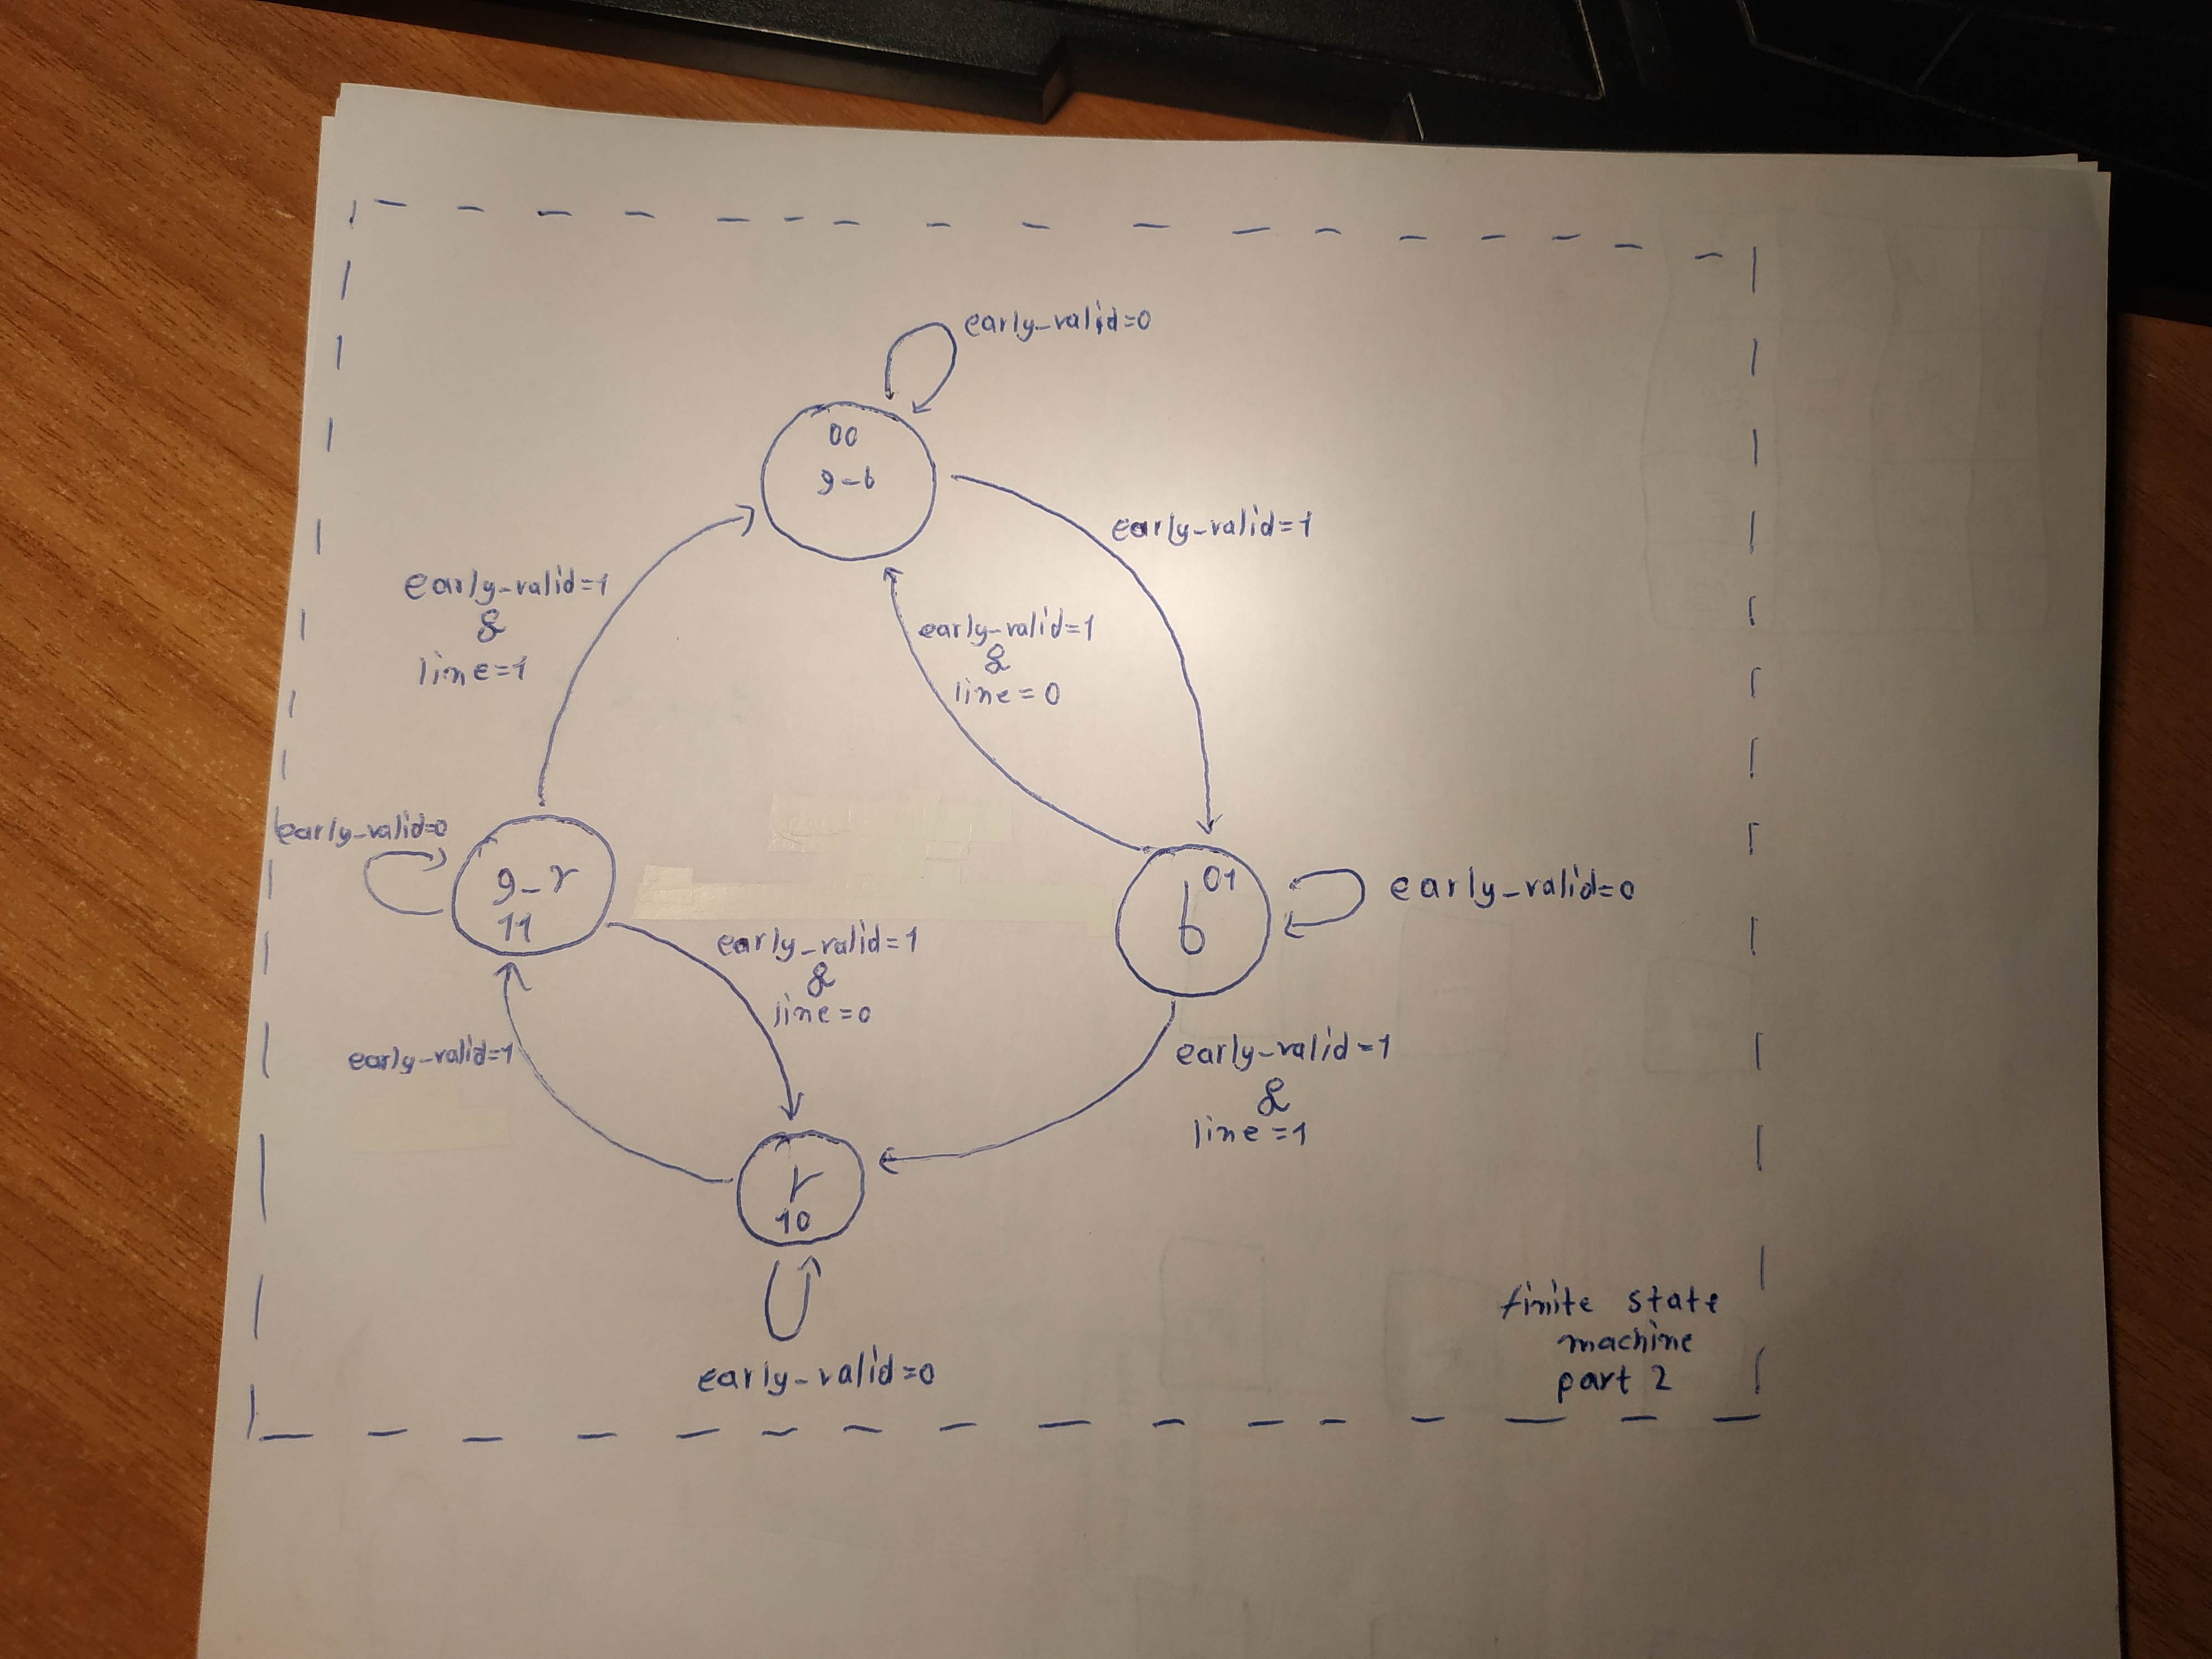 early-valid=0
00
g-b
early-valid=1
early-valid=1
&
line=1
early-valid=1
&
line=0
early-valid=0
g-r
11
01
b
early-valid=0
early-valid=1
&
line=0
early-valid=1
early-valid=1
&
line=1
r
10
early-valid=0
finite state
machine
part 2